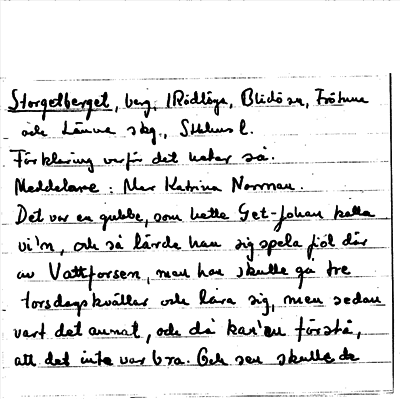 Storgetberget, berg, i Rödlöga, Blidö sn, Frötuna
och Länna skg., Sthlms l.
Förklaring varför det heter så.
Meddelare: Mor Katrina Norman.
Det var en gubbe, som hette Get-Johan kalla
vi'n, och så lärde han sig spela fiol där
av Vattforsen, men han skulle gå tre
torsdagskvällar och lära sig, men sedan
vart det annat, och då kan'en förstå,
att det inte var bra. Och sen skulle de